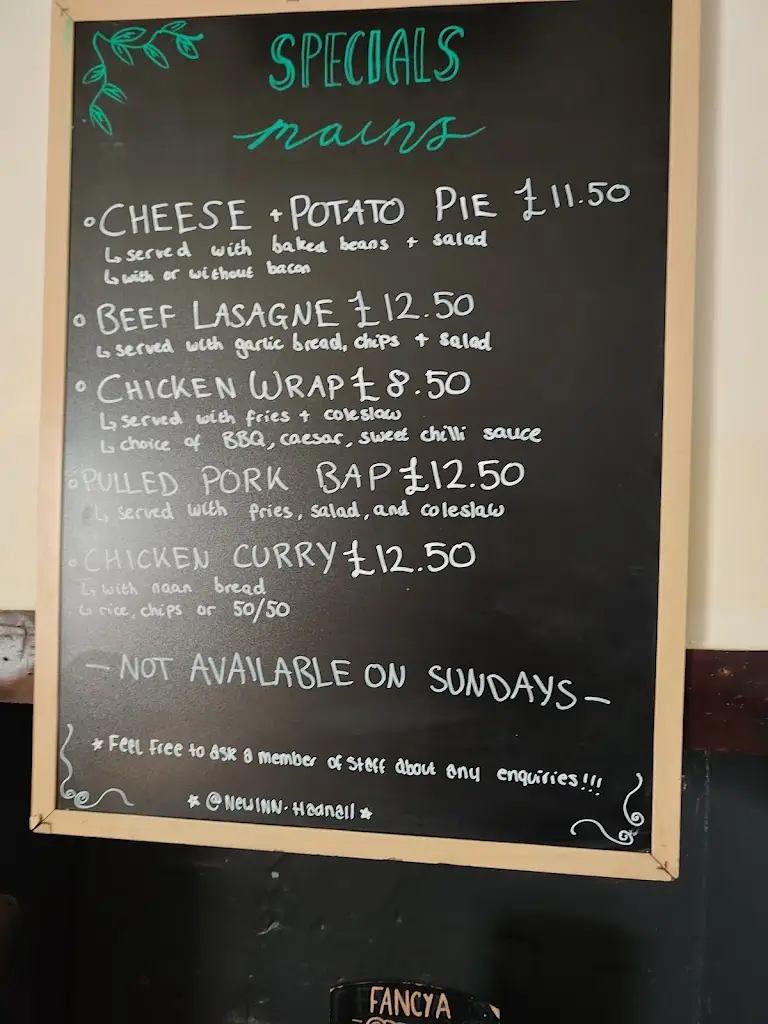 SPECIALS
mains
CHEESE + POTATO PIE £11.50
↳ served with baked beans + salad
↳ with or without bacon
BEEF LASAGNE £12.50
↳ served with garlic bread, chips + salad
CHICKEN WRAP £8.50
↳ served with fries + coleslaw
↳ choice of BBQ, caesar, sweet chilli sauce
PULLED PORK BAP £12.50
↳ served with fries, salad, and coleslaw
CHICKEN CURRY £12.50
↳ with naan bread
↳ rice, chips or 50/50
- NOT AVAILABLE ON SUNDAYS -
* Feel free to ask a member of staff about any enquiries!!!
* @NEWINN.Hadnall *
FANCY A